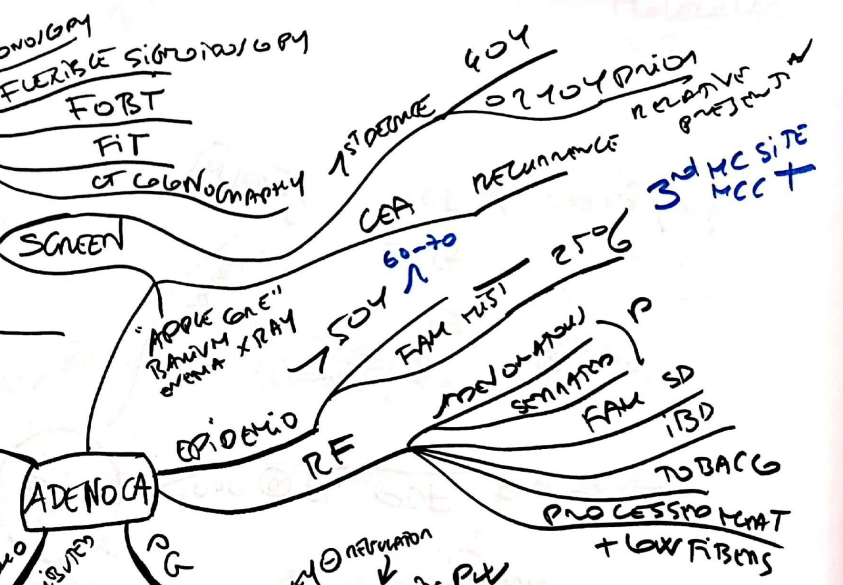 FLEXIBLE SIGMOIDOSCOPY
FOBT
FiT
CT COLONOGRAPHY
SCREEN
1ST DEGREE
40Y
OR 10Y PRIOR
RELATIVE
PRESENT
CEA
RECURRANCE
3rd MC SITE
MCC +
"APPLE CORE"
BARIUM
ENEMA XRAY
60-70
50Y
FAM HIST
25%
EPIDEMIO
RF
ADENOMATOUS
SERRATED
P
FAM SD
iBD
TOBACCO
PROCESSED MEAT
+ LOW FIBERS
ADENOCA
PG
⊖ REGULATOR